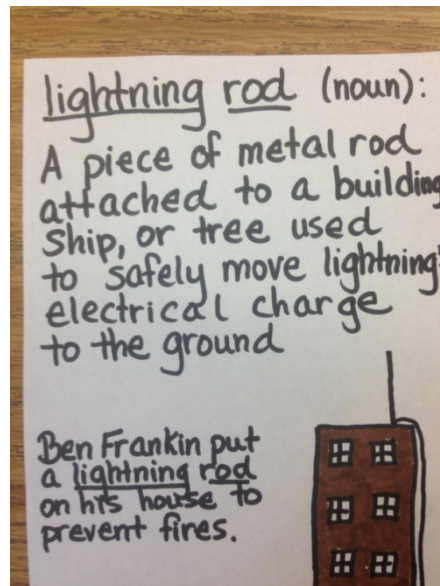 lightning rod (noun):
A piece of metal rod
attached to a building
ship, or tree used
to safely move lightning'
electrical charge
to the ground
Ben Frankin put
a lightning rod
on his house to
prevent fires.